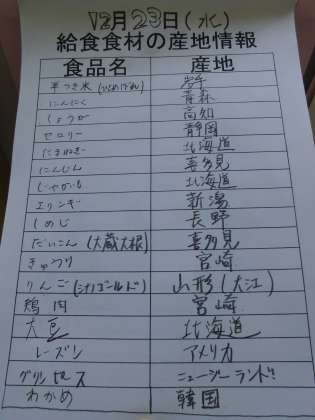 12月23日(水)
給食食材の産地情報
食品名 産地
半つき米(ひとめぼれ) 岩手
にんにく 青森
しょうが 高知
セロリー 静岡
たまねぎ 北海道
にんじん 喜多見
じゃがいも 北海道
エリンギ 新潟
しめじ 長野
だいこん(大蔵大根) 喜多見
きゅうり 宮崎
りんご(シナノゴールド) 山形(大江)
鶏肉 宮崎
大豆 北海道
レーズン アメリカ
グリンピース ニュージーランド
わかめ 韓国